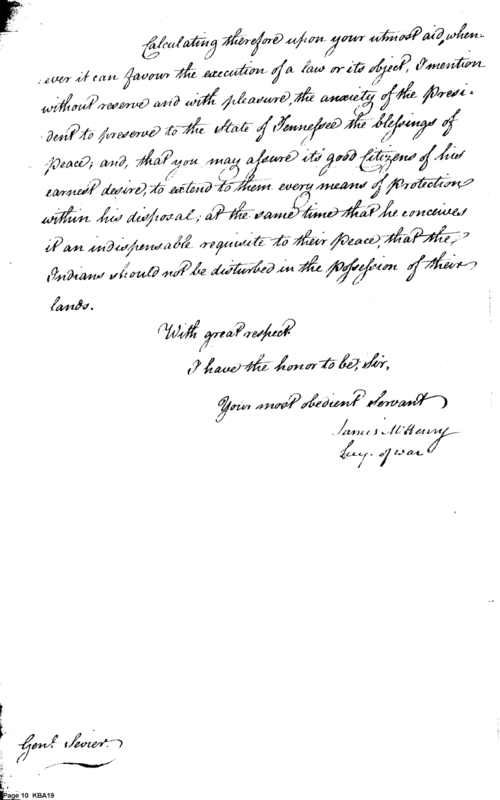 Calculating therefore upon your utmost aid, when-
ever it can favour the execution of a law or its object, I mention
without reserve and with pleasure, the anxiety of the Presi-
dent to preserve to the State of Tennessee the blessings of
peace; and, that you may assure it's good Citizens of his
earnest desire, to extend to them every means of Protection
within his disposal; at the same time that he conceives
it an indispensable requisite to their Peace, that the
Indians should not be disturbed in the Possession of their
lands.
With great respect
I have the honor to be, Sir,
Your most obedient Servant
James McHenry
Secy. of war
Genl. Sevier.
Page 10 KBA19